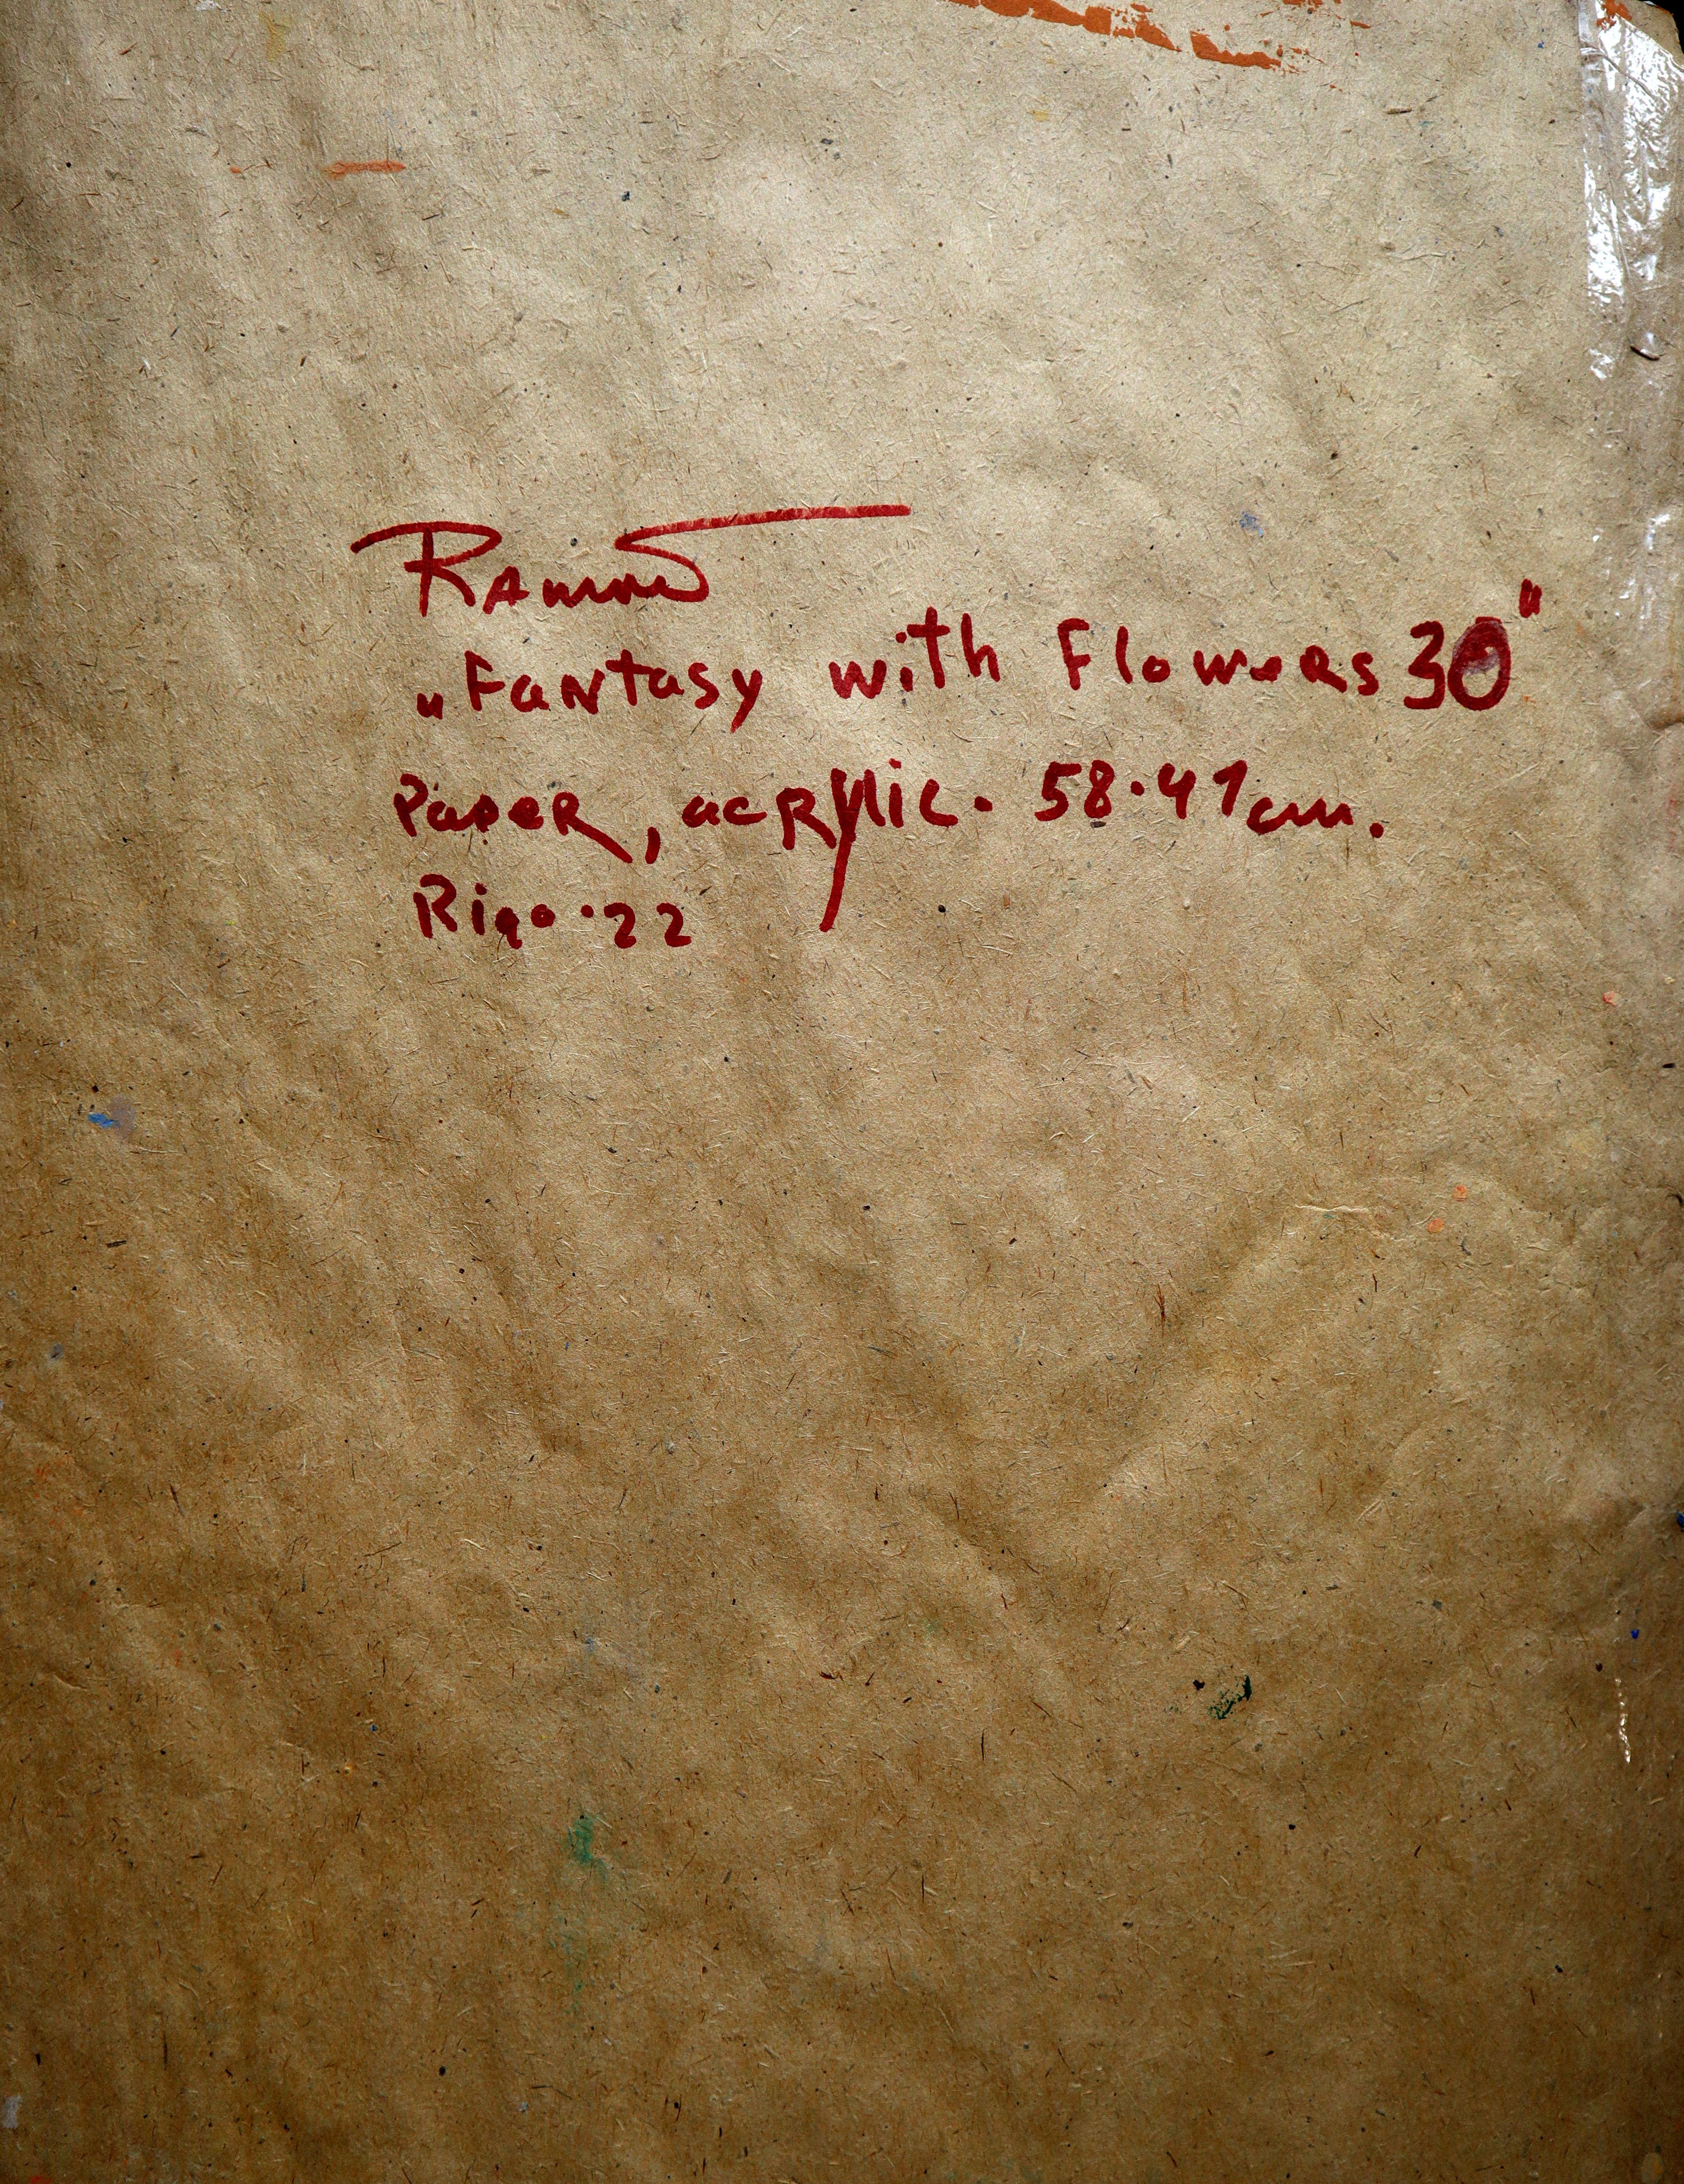 Ramans
„Fantasy with Flowers 30"
Paper, acrylic. 58.41cm.
Riga.22